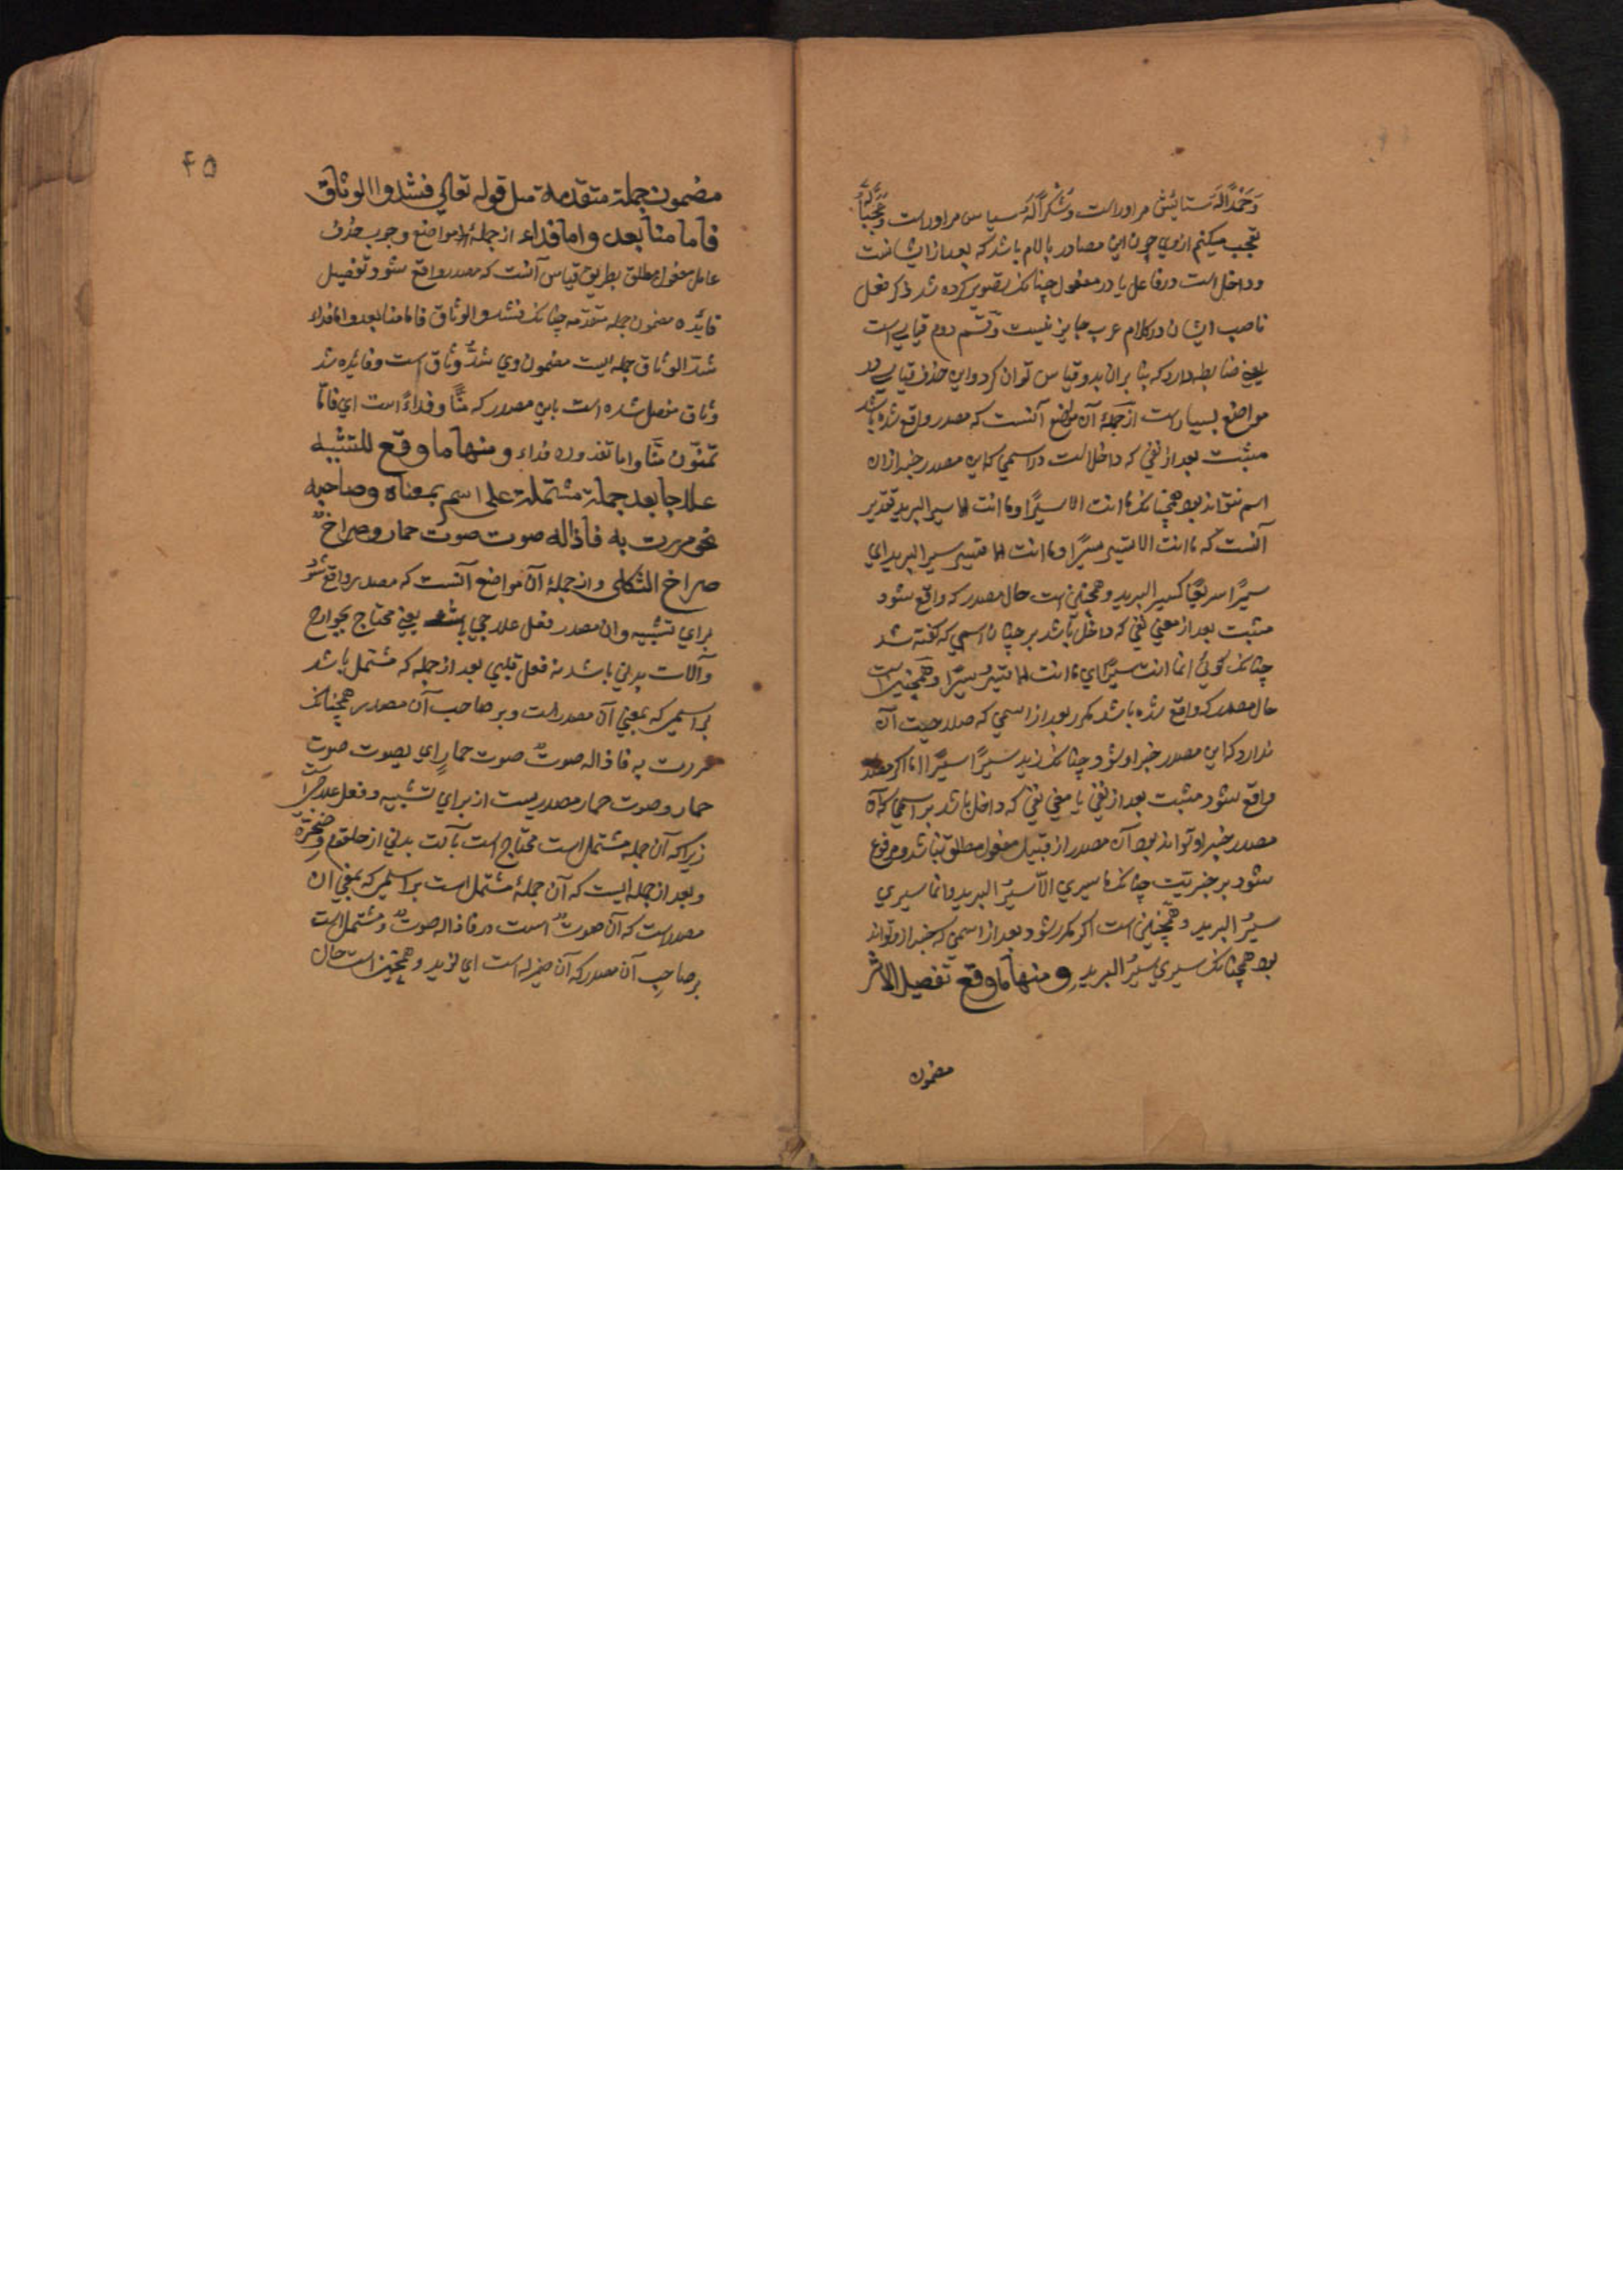 وَحَمْدًا لَهُ ستایش مر اوراست وَشُكْرًا لَهُ سپاس مر اوراست وَعَجَبًا لَهُ
تعجب میکنم ازوی چون این مصادر بالام باشد که بعد از ایشانست
و داخل است در فاعل یا در مفعول چنانکه تصویر کرده شد ذکر فعل
ناصب ایشان در کلام عرب جایز نیست و قسم دوم قیاسی است
یعنی ضابطه دارد که بنابران بدو قیاس توان کرد و این حذف قیاسی در
مواضع بسیار است از جمله آن مواضع آنست که مصدر واقع شده باشد
مثبت بعد از نفی که داخل است در اسمی که این مصدر خبر ازان
اسم نتواند بود همچنانکه ما انت الا سیرًا و ما انت الا سیر البرید تقدیر
آنست که ما انت الا تسیر سیرًا و ما انت الا تسیر سیر البرید ای
سیرًا سریعًا کسیر البرید و همچنین است حال مصدر که واقع شود
مثبت بعد از معنی نفی که داخل باشد بر چنان اسمی که گفته شد
چنانکه گوئی انما انت سیرًا ای ما انت الا تسیر سیرًا و همچنین است
حال مصدر که واقع شده باشد مکرر بعد از اسمی که صلاحیت آن
ندارد که این مصدر خبر او شود چنانکه زید سَیرًا سیرًا اما اگر مصدر
واقع شود مثبت بعد از نفی یا معنی نفی که داخل باشد بر اسمی که آن
مصدر خبر او تواند بود آن مصدر از قبیل مفعول مطلق نباشد و مرفوع
شود بر خبریت چنانکه ما سیری الّا سیرُ البرید و انما سیری
سیرُ البرید و همچنین است اگر مکرر شود بعد از اسمی که خبر ازو تواند
بود همچنانکه سیری سیرُ البریدِ ومنها ما وقع تفصیل الاثر
مضمون
۴۵
مضمون جملة متقدمة مثل قوله تعالی فشدوا الوثاق
فاما منا بعد واما فداء از جملهٔ مواضع وجوب حذف
عامل مفعول مطلق بطریق قیاس آنست که مصدر واقع شود تفصیل
فایده مضمون جمله متقدّمه چنانکه فشدوا الوثاق فاما منا بعد واما فداء
شدّ الوثاق جمله ایست مضمون وی شدُّ وثاق است و فایده شد
وثاق مفصل شده است باین مصدر که منًّا و فداءً است ای فامّا
تمنّون منًّا واما تفدون فداء ومنها ما وقع للتشبیه
علاجا بعد جملة مشتملة علی اسم بمعناه وصاحبه
نحو مررت به فاذا له صوت صوت حمار وصراخٌ
صراخ الثکلی و از جملهٔ آن مواضع آنست که مصدر واقع شود
برای تشبیه و ان مصدر فعل علاجی باشد یعنی محتاج بجوارح
و آلات بدنی باشد نه فعل قلبی بعد از جمله که مشتمل باشد
بر اسمی که بمعنی آن مصدر است و بر صاحب آن مصدر همچنانکه
مررت به فاذا له صوتٌ صوت حمارٍ ای یصوت صوت
حمار و صوت حمار مصدریست از برای تشبیه و فعل علاجی است
زیرا که آن جمله مشتمل است محتاج است بآلت بدنی از حلقوم و حنجرة
و بعد از جمله ایست که آن جملهٔ مشتمل است بر اسمی که بمعنی ان
مصدر است که آن صوتٌ است در فاذا له صوتٌ و مشتمل است
بر صاحبِ آن مصدر که آن ضمیر له است ای لزید و همچنین است حال